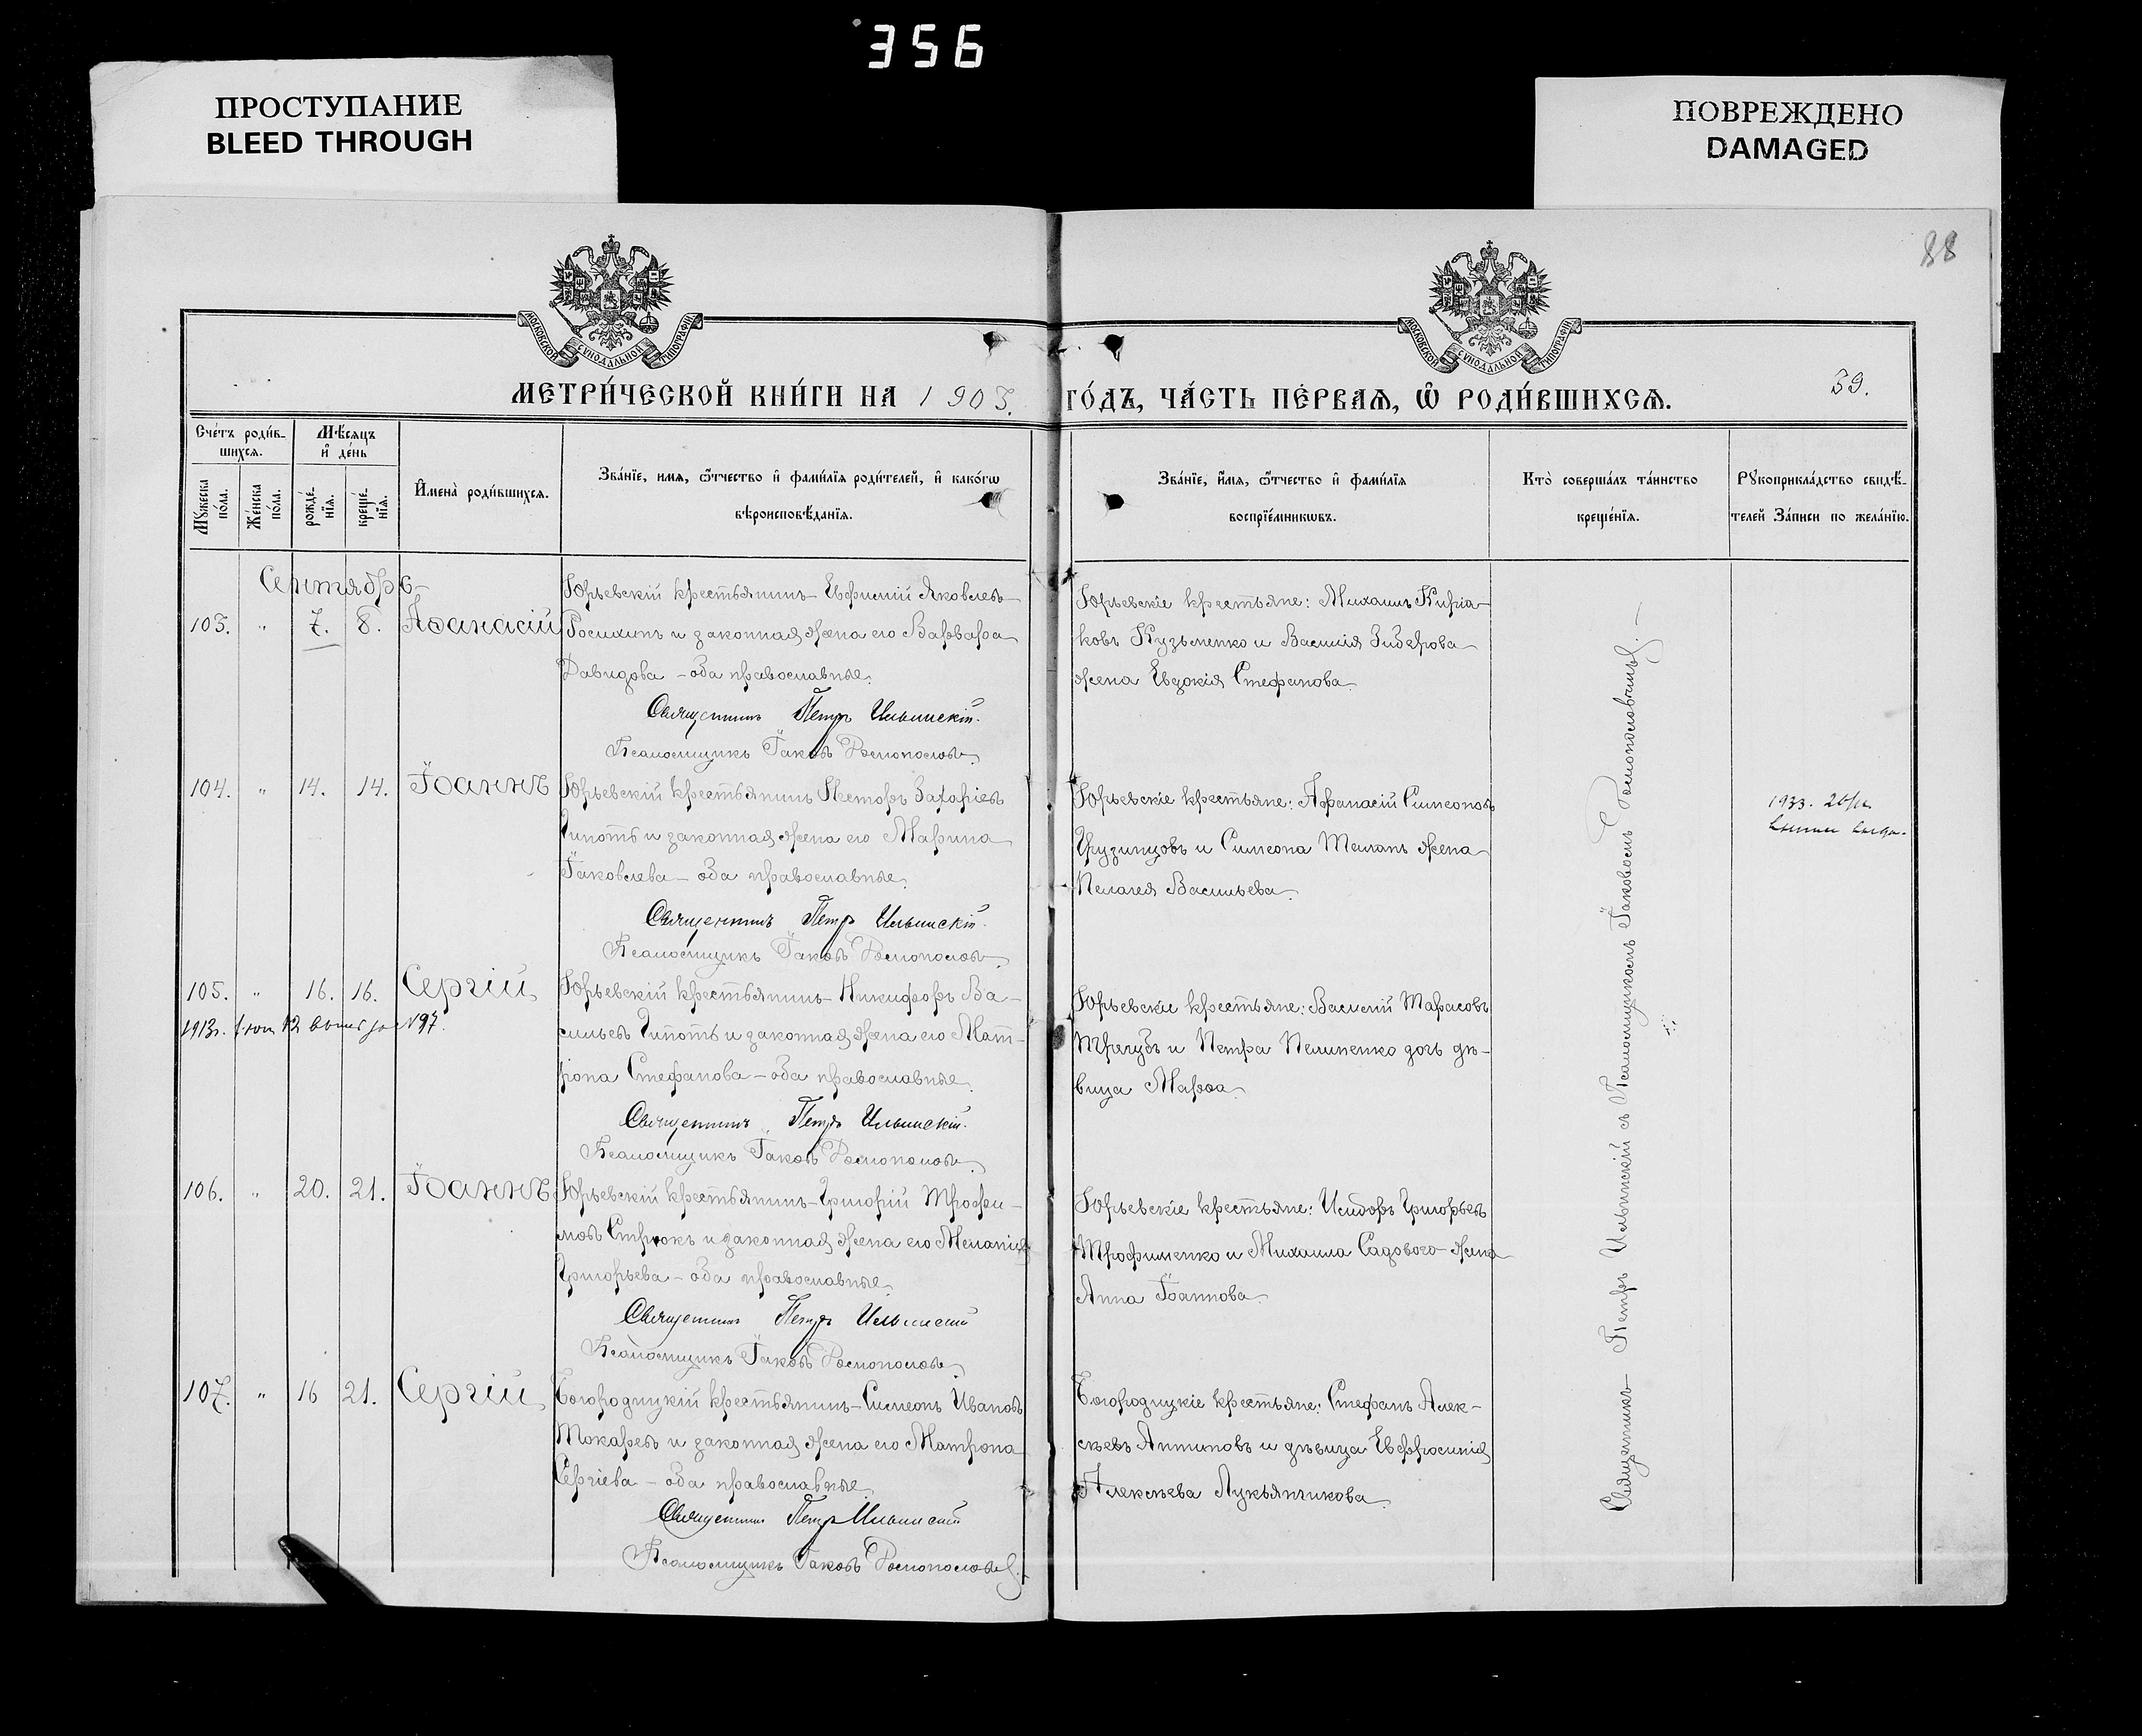 356
ПРОСТУПАНИЕ
BLEED THROUGH
ПОВРЕЖДЕНО
DAMAGED
88
МОСКОВСКОЙ СѴНОДАЛЬНОЙ ТИПОГРАФІИ
МОСКОВСКОЙ СѴНОДАЛЬНОЙ ТИПОГРАФІИ
МЕТРИ́ЧЕСКОЙ КНИ́ГИ НА 1903. ГО́ДЪ, ЧА́СТЬ ПЕ́РВАѦ, Ѡ҆ РОДИ́ВШИХСѦ.
39.
Сче́тъ роди́в-
шихсѧ.
Мѣ́сѧцъ
и҆ де́нь
Мꙋ́жеска
по́ла.
Же́нска
по́ла.
рожде́-
нїѧ.
креще́-
нїѧ.
И҆мена̀ роди́вшихсѧ.
Зва́нїе, имѧ, ѻ҆́тчество и҆ фами́лїѧ роди́телей, и҆ како́гѡ
вѣроисповѣ́данїѧ.
Зва́нїе, и҆́мѧ, ѻ҆́тчество и҆ фами́лїѧ
воспрїе́мникѡвъ.
Кто̀ соверша́лъ та́инство
креще́нїѧ.
Рꙋкоприкла́дство свидѣ́-
телей За́писи по жела́нїю.
Сентябрь
103. " 7. 8. Аѳанасій
Юрьевскій крестьянинъ Евфимій Яковлевъ
и законная жена его Варвара
Давидова – оба православные.
Священникъ Петръ Ильинскій.
Псаломщикъ Іаковъ Распоповъ
Юрьевскіе крестьяне: Михаилъ Киріа-
ковъ Кузьменко и Василія жена Евдокія Стефанова.
104. " 14. 14. Іоаннъ
Юрьевскій крестьянинъ Несторъ Захаріевъ
Чипоть и законная жена его Марина
Іаковлева – оба православные.
Священникъ Петръ Ильинскій.
Псаломщикъ Іаковъ
Юрьевскіе крестьяне: Афанасій Симеоновъ
Грузинцовъ и Симеона жена
Пелагея Васильева.
1933.
105. " 16. 16. Сергій
1913г. N97.
Юрьевскій крестьянинъ Никифоръ Ва-
сильевъ Чипоть и законная жена его Мат-
рона Стефанова – оба православные
Священникъ Петръ Ильинскій.
Псаломщикъ Іаковъ
Юрьевскіе крестьяне: Василій Тарасовъ
Трегубъ и Петра Пелипенко дочь дѣ-
вица Марѳа.
106. " 20. 21. Іоаннъ
Юрьевскій крестьянинъ Григорій Трофи-
мовъ и законная жена его Меланія
Григорьева – оба православные
Священникъ Петръ Ильинскій
Псаломщикъ Іаковъ
Юрьевскіе крестьяне: Исидоръ Григорьевъ
Трофименко и Михаила Садового жена
Анна Іоаннова.
107. " 16 21. Сергій
Богородицкій крестьянинъ Симеонъ Ивановъ
Токаревъ и законная жена его Матрона
Сергіева – оба православные
Священникъ Петръ Ильинскій
Псаломщикъ Іаковъ
Богородицкіе крестьяне: Стефанъ Алек-
сѣевъ Антиповъ и дѣвица Евфросинія
Алексѣева Лукьянчикова.
Священникъ Петръ Ильинскій съ Псаломщикомъ Іаковомъ